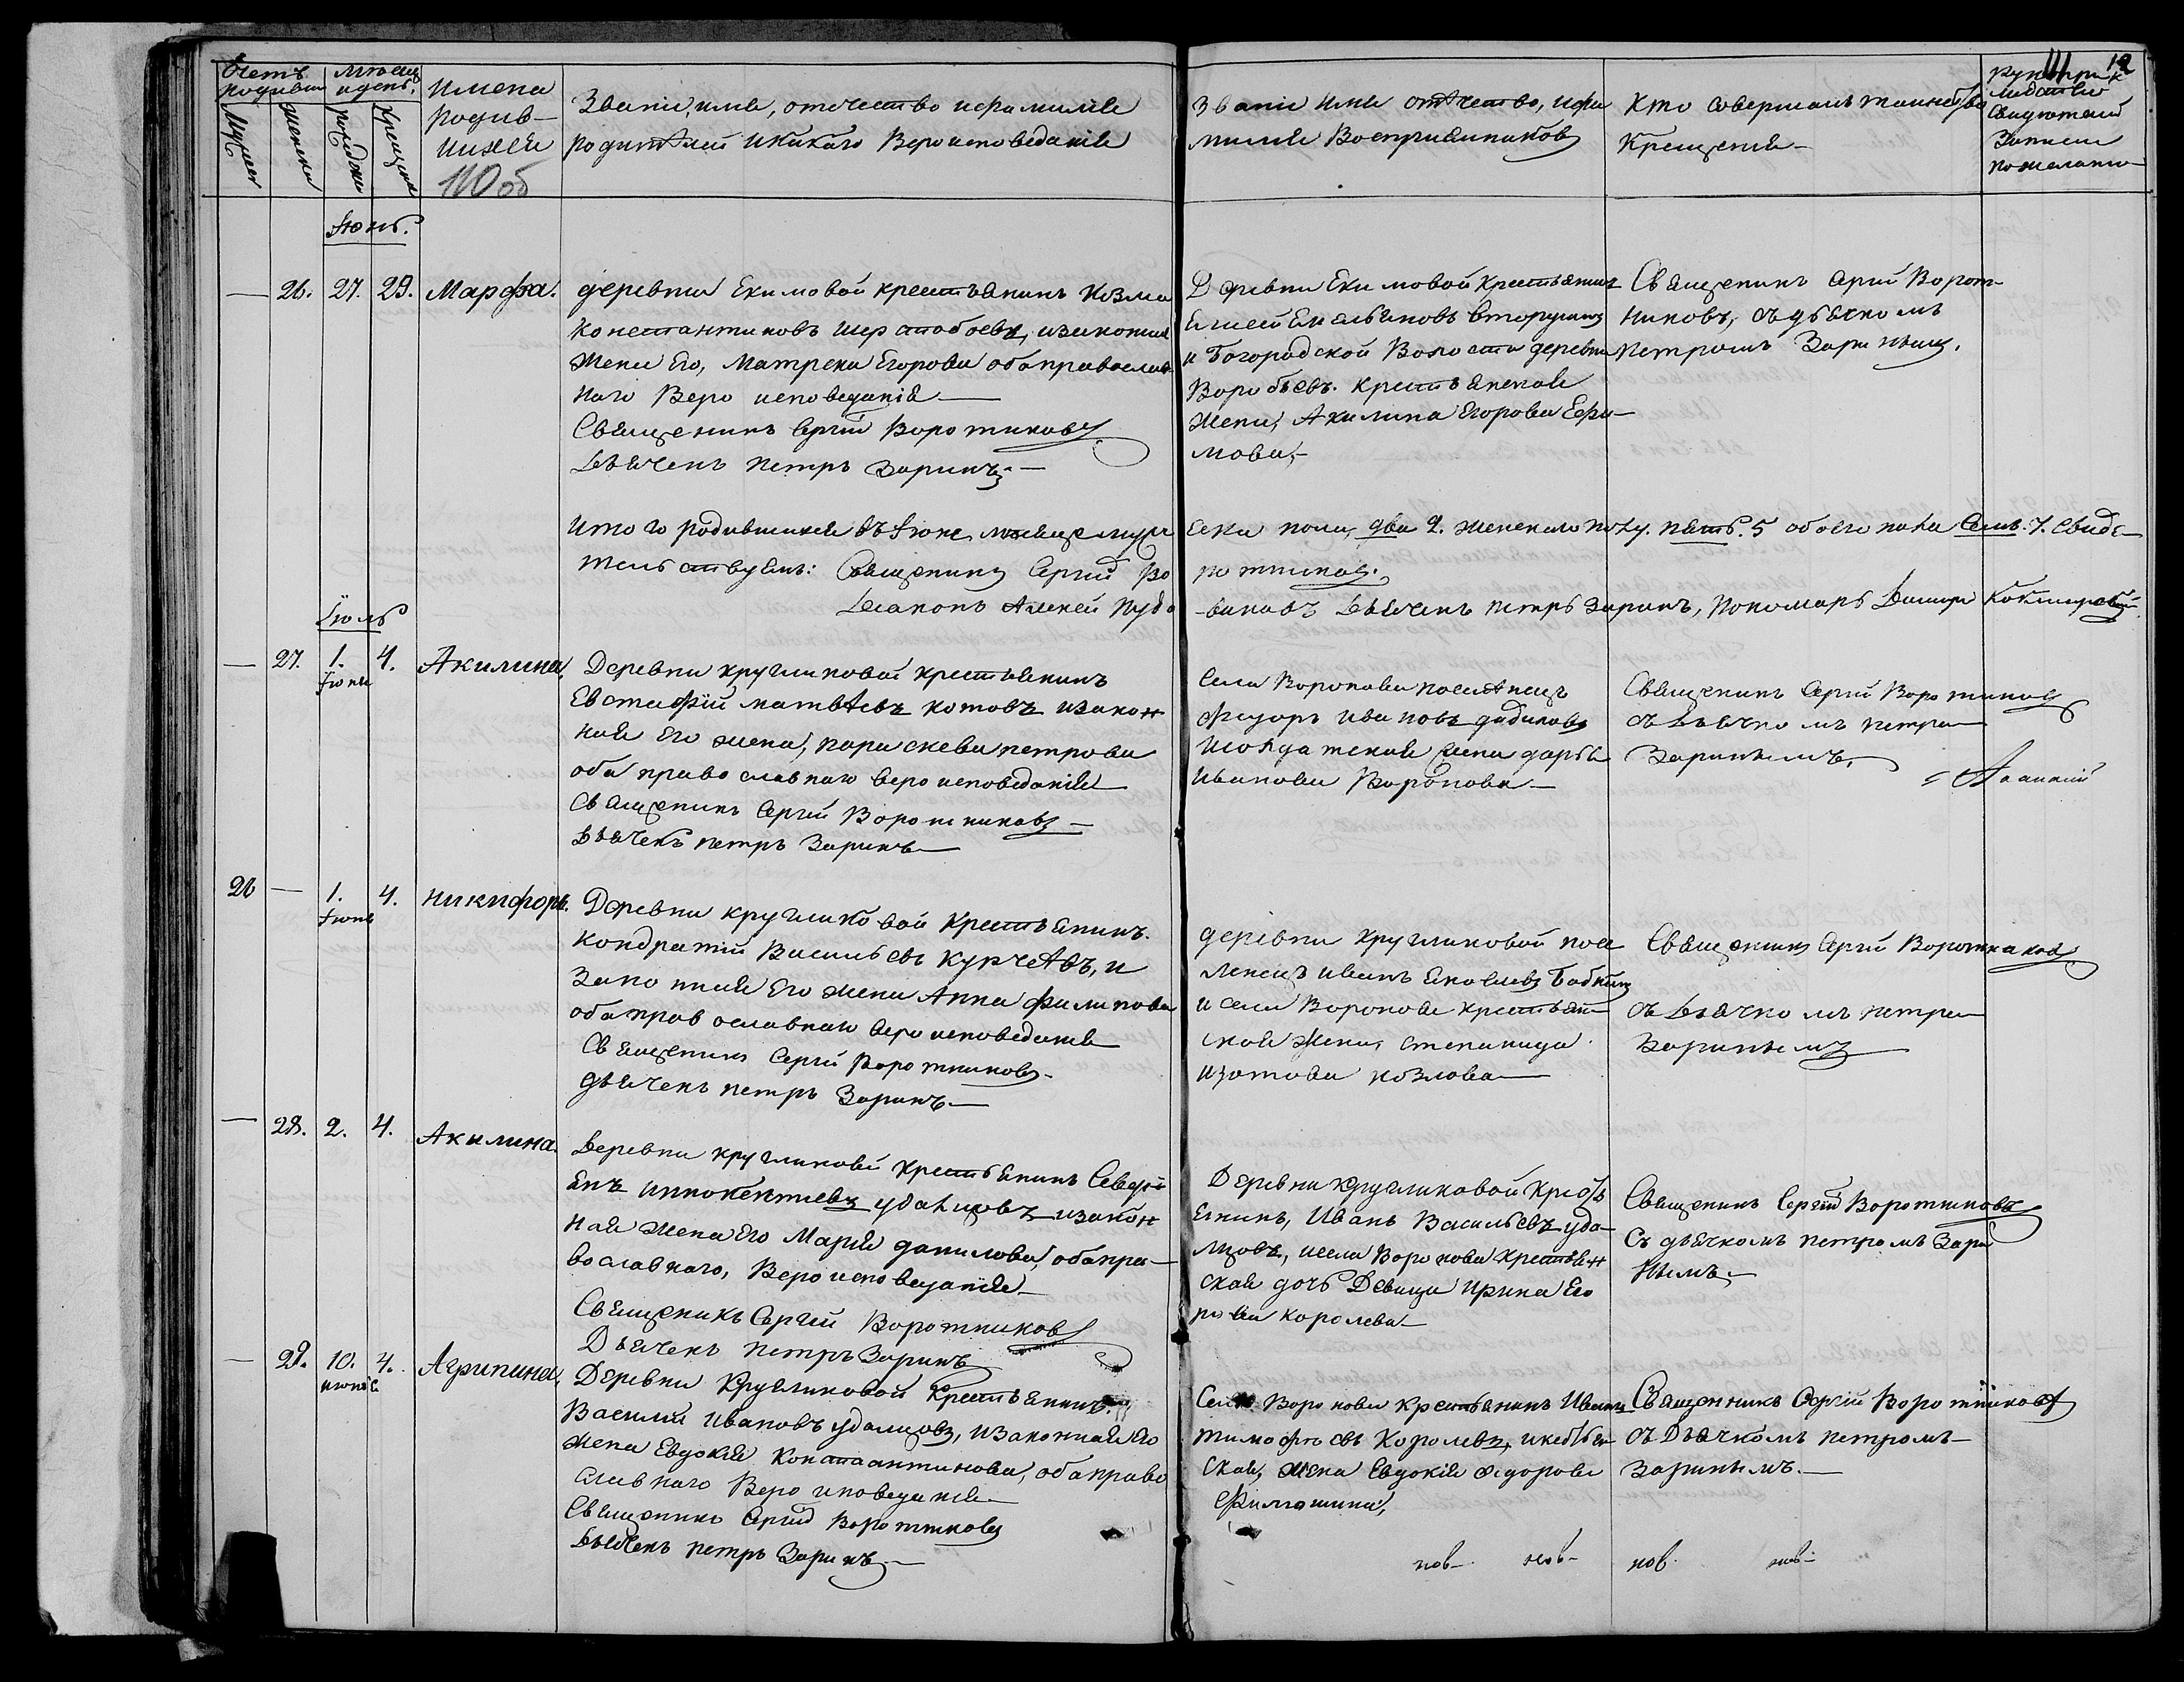 Счетъ родивши
Мужеска
Женска
Мѣсяц и день.
рожденія
Крещенія
Имена
родив-
шихся
110 об
Званіе, имя, отечество и фамилія
родителей и какаго Вероисповеданія
Званіе имя отечество, и фа
милія Восприемниковъ
Кто совершалъ таинство
Крещенія-
111 12
Рукопри
кладство
Свидетелей
Записи
по желанію-
Июнь.
— 26. 27. 29. Марфа.
деревни Екимовой крестьянинъ Козма
Константиновъ Шерстобоевъ, и законная
Жена Его, Матрена Егорова оба православ-
наго Веро исповеданія —
Священникъ Сергій Воротниковъ
Дьячекъ петръ Заринъ. —
Деревни Екимовой Крестьянинъ
Елисей Емельяновъ Вторушинъ
и Богородской Волости деревни
Воробьевъ. крестьянская
Жена, Акилина Егорова Ефи-
мова, -
Священникъ Сергій Ворот-
никовъ, съ дьячкомъ
петромъ Заринымъ.
Итого родившихся въ Июне месяце муж
еска пола, два 2. женскаго полу. пять. 5 обоего пола Семь. 7. Свиде-
тельствуемъ: Священникъ Сергій Во
ротниковъ.
Диаконъ Алексей Пудо
виковъ Дьячекъ петръ Заринъ, Пономарь
Июль
— 27. 1. Июля 4. Акилина.
Деревни кругликовой крестьянинъ
Евстафій матвѣевъ котовъ и закон
ная Его жена, параскева петрова
оба православнаго вероисповеданія
Священникъ Сергій Воротниковъ —
Дьячекъ петръ Заринъ —
Села Воронова поселенецъ
Федоръ Ивановъ
и солдатская жена дарья
Иванова Воронова —
Священникъ Сергій Воротниковъ
съ Дьячкомъ петром
Заринымъ.
26 — 1. Июля 4. Никифоръ.
Деревни кругликовой Крестьянинъ.
Кондратій Васильевъ Курчеевъ, и
Законная Его жена Анна филипова
оба православнаго вероисповеданія
Священникъ Сергій Воротниковъ -
дьячекъ петръ Заринъ. —
деревни кругликовой посе
ленецъ иванъ Яковлевъ Бабкинъ
и села Воронова крестьян-
ская жена, степанида
изотова козлова —
Священникъ Сергій Воротниковъ
съ Дьячкомъ петром
Заринымъ
— 28. 2. 4. Акилина.
Деревни кругликовой крестьянинъ Севері
янъ иннокентиевъ удальцовъ и закон
ная жена Его Марія данилова, оба пра-
вославнаго, Вероисповеданія. —
Священникъ Сергій Воротниковъ
Дьячекъ петръ Заринъ
Деревни кругликовой Кресть
янинъ, Иванъ Васильевъ уда-
льцовъ, и села Воронова крестьян
ская дочь Девица Ирина Его
рова Королева —
Священникъ Сергій Воротниковъ
Съ дьячкомъ петромъ Зари
нымъ. —
— 29. 10. июня 4. Агрипина.
Деревни Кругликовой Крестьянинъ.
Василій Ивановъ удальцовъ, и законная Его
жена Евдокія Константинова, оба право
славнаго Веро исповеданія —
Священникъ Сергій Воротниковъ
Дьячекъ петръ Заринъ. —
Села Воронова крестьянинъ Иванъ
Тимофѣевъ Королевъ, и крестьян
ская, жена Евдокія Федорова
Филюшина,
Священникъ Сергій Воротниковъ
съ Дьячкомъ петромъ —
Заринымъ. —
нов - нов - нов - нов -